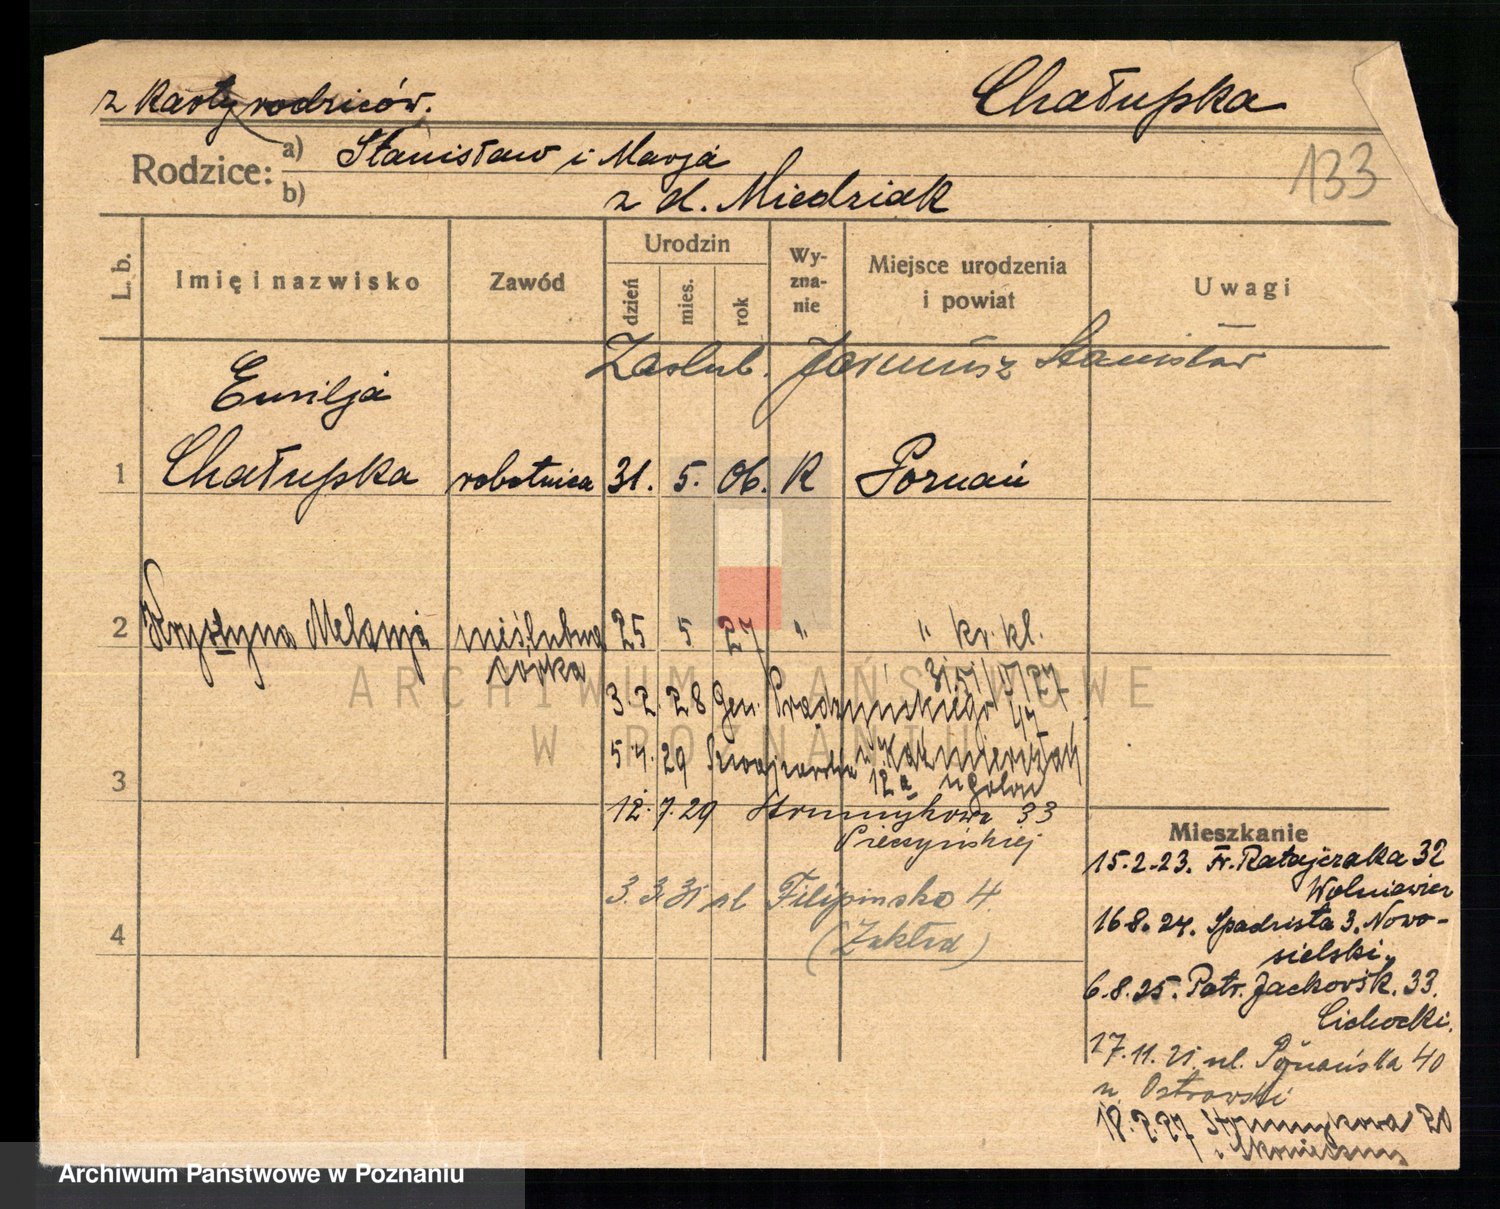 z karty rodziców.
Chałupka
Rodzice: a) Stanisław i Marja
b) z d. Miedziak
133
L. b.
Imię i nazwisko
Zawód
Urodzin
dzień
mies.
rok
Wy-
zna-
nie
Miejsce urodzenia
i powiat
Uwagi
Zaślub. Jarmusz Stanisław
Emilja
1 Chałupka robotnica 31. 5. 06. K Poznań
2 Krystyna Melanja nieślubna córka 25 5 27 " " kr. kl.
3. 2. 28 Gen. Prądzyńskiego 47
3
5.4.29 12a
12.7.29 Strumykowa 33
Pieczyńskiej
4
3. 3. 31 ul Filipińska 4.
(Zakład)
Mieszkanie
15.2.23. Fr. Ratajczaka 32
Wolniewicz
16.8.24. Spadzista 3. Nowo-
sielski.
6.8.25. Patr. Jackowsk. 33.
Cichocki.
ul. Poznańska 40
u Ostrowski
18.2.27 Strumykowa 20
ARCHIWUM PAŃSTWOWE
W POZNANIU
Archiwum Państwowe w Poznaniu